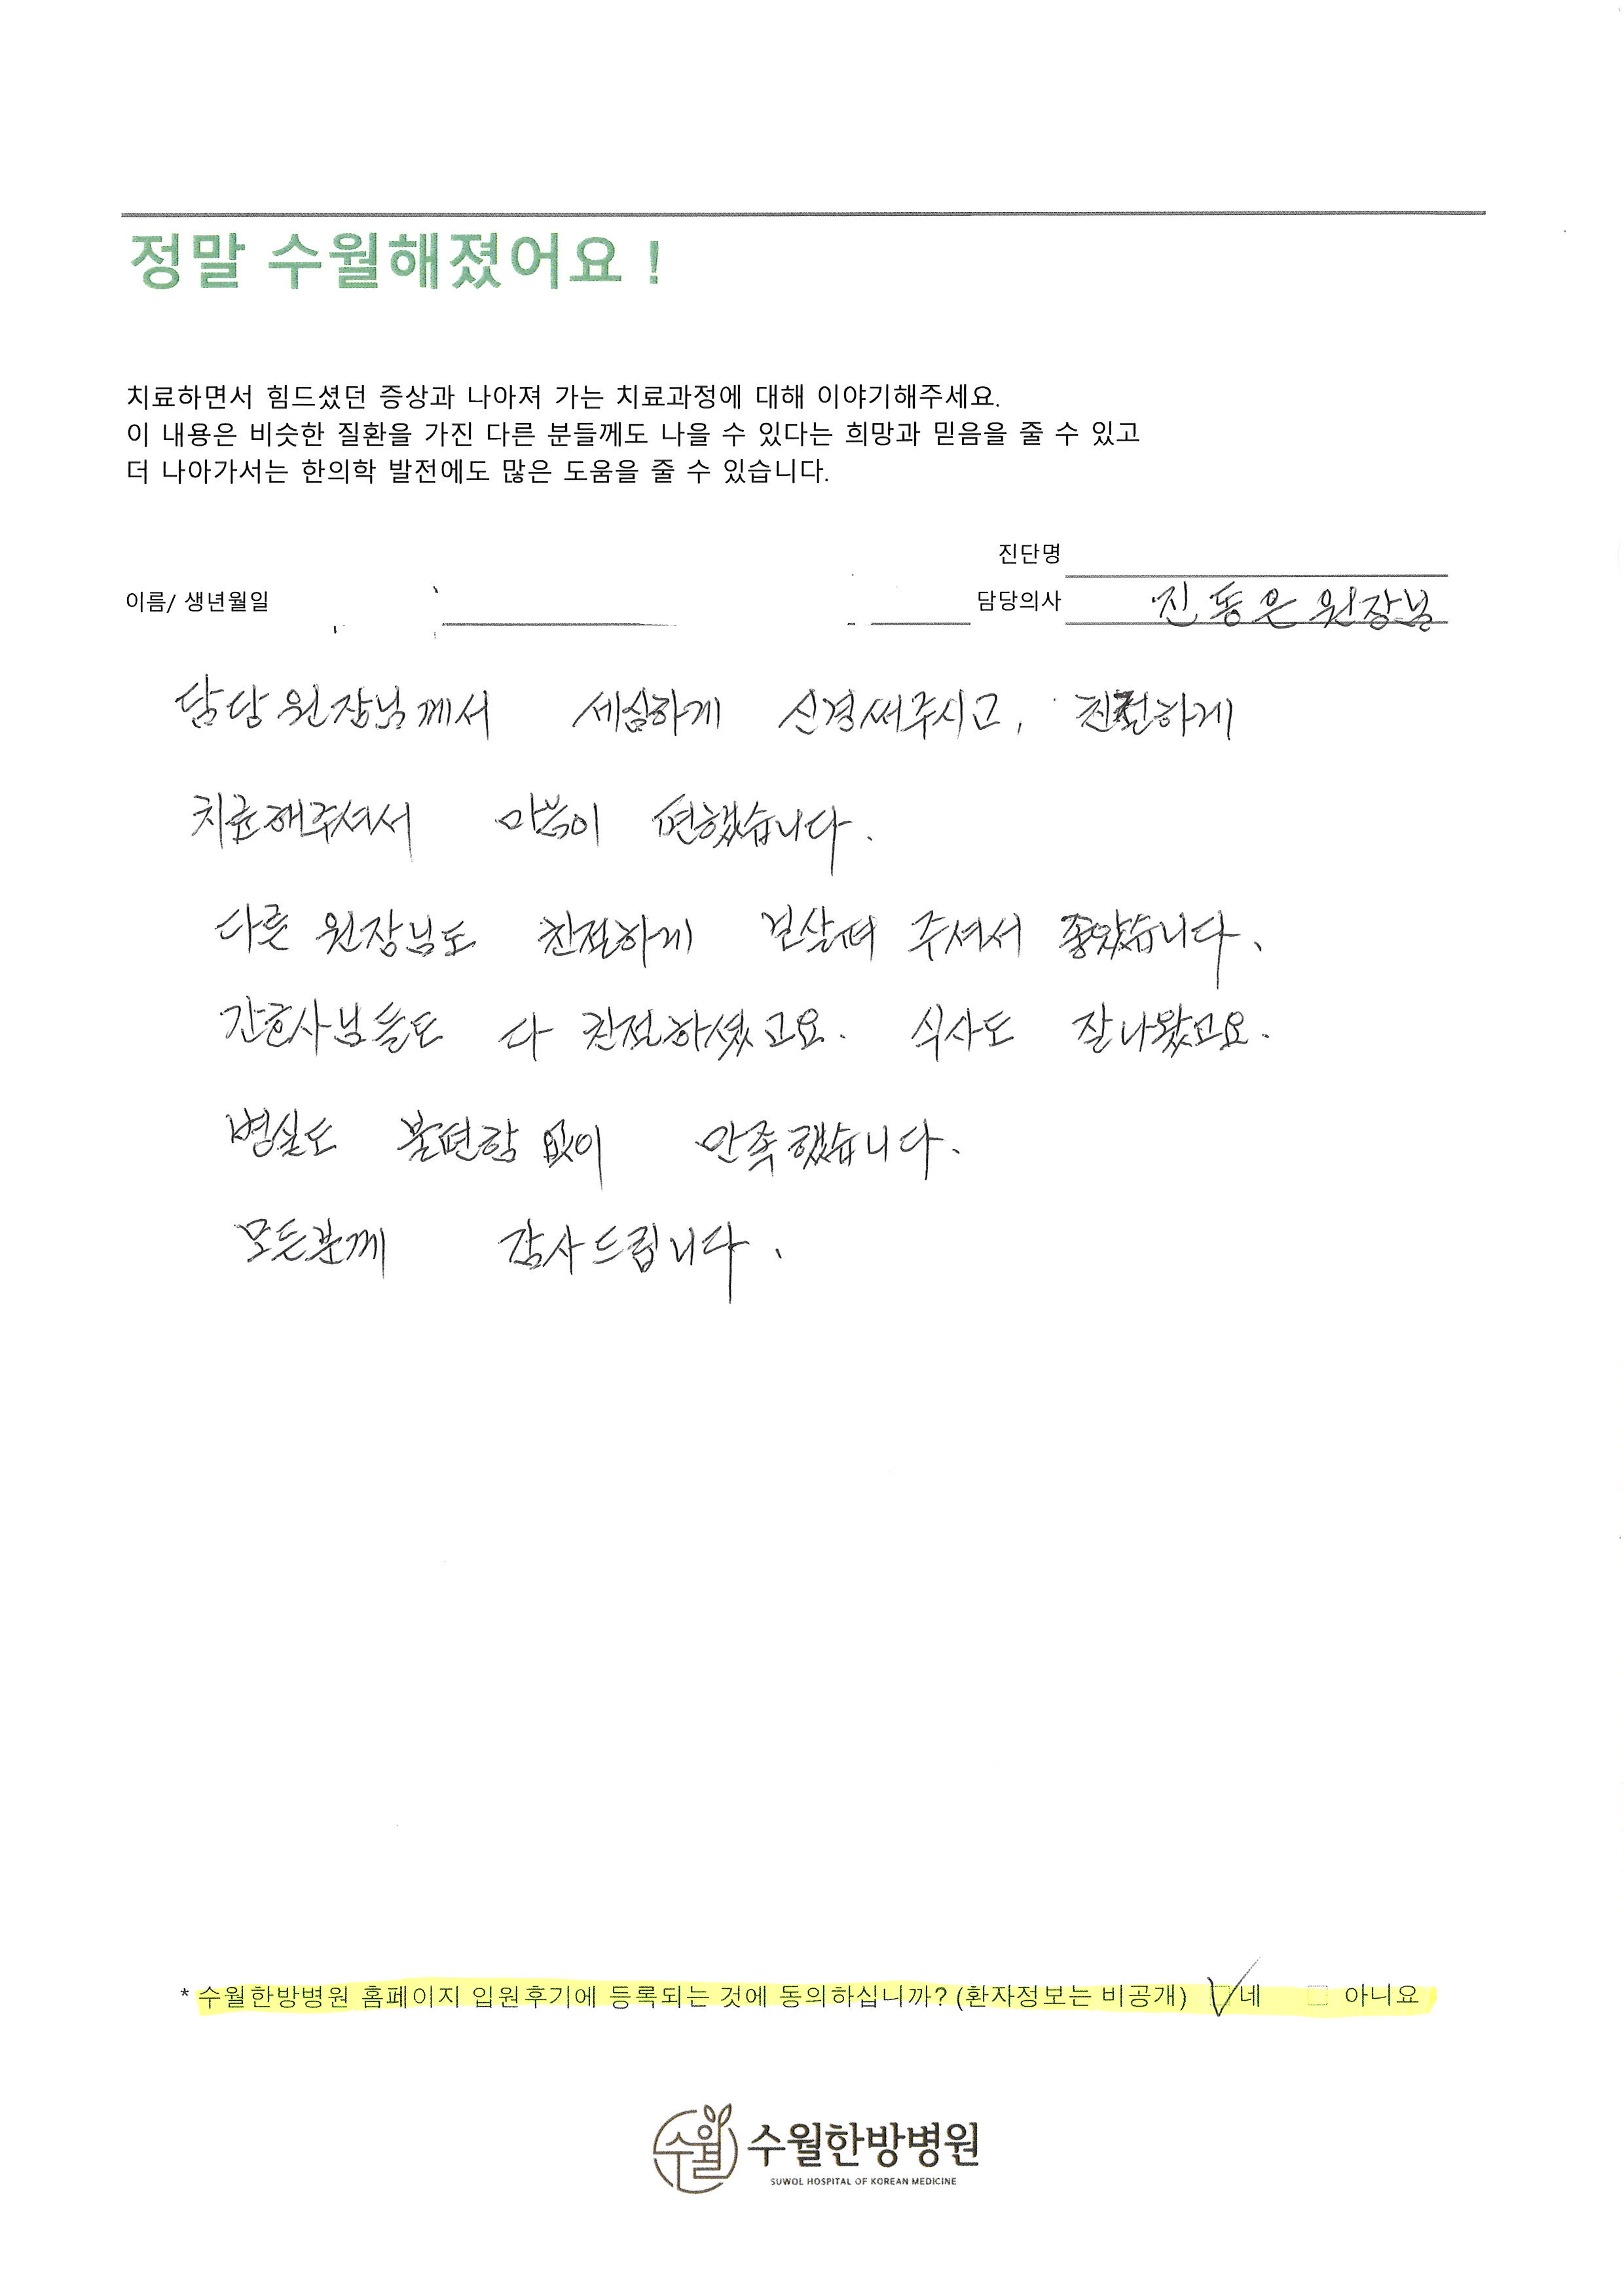 정말 수월해졌어요 !
치료하면서 힘드셨던 증상과 나아져 가는 치료과정에 대해 이야기해주세요.
이 내용은 비슷한 질환을 가진 다른 분들께도 나을 수 있다는 희망과 믿음을 줄 수 있고
더 나아가서는 한의학 발전에도 많은 도움을 줄 수 있습니다.
진단명
이름/ 생년월일 담당의사 진동은 원장님
담당 원장님께서 세심하게 신경써주시고, 친절하게
치료해주셔서 마음이 편했습니다.
다른 원장님도 친절하게 보살펴 주셔서 좋았습니다.
간호사님들도 다 친절하셨고요. 식사도 잘나왔고요.
병실도 불편함 없이 만족했습니다.
모든분께 감사드립니다.
* 수월한방병원 홈페이지 입원후기에 등록되는 것에 동의하십니까? (환자정보는 비공개) 네 아니요
수월 수월한방병원
SUWOL HOSPITAL OF KOREAN MEDICINE